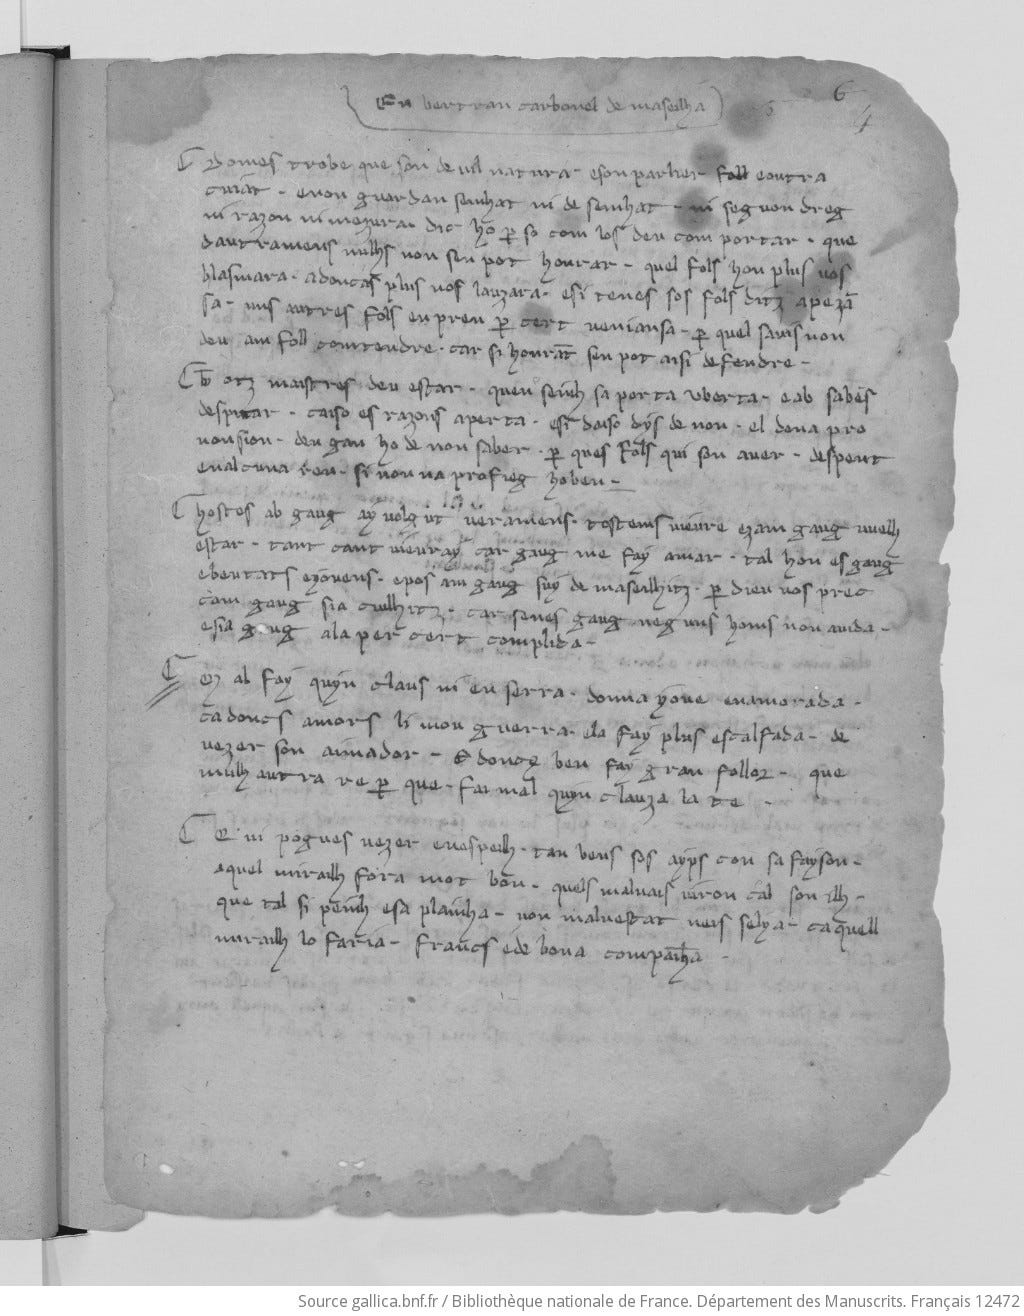 En bertran carbonel de maseilha
6
4
C Domes trobe que son de vil natura · eson parlier foll eoutra
cuiat · enon guardan semhat ni de semhat · ni seguon dreg
ni razon ni mezura · dic ho p̱ so com los deu com portar · que
dautramens milhs non sen pot honrar · quel fols hon plus vos
blasmara · adoncas plus vos lauzara · esi tenes sos fols ditz apezā
sa · uns autres fols en pren p̱ cert veniansa · p̱ quel savis non
deu am foll contendre · car si honrat sen pot aisi defendre ·
C otz maistres deu estar · quen semh sa porta uberta · e ab sabes
despuar · caiso es razons aperta · esi daiso dys de non · el dona pro
nonsion · deu gan ho de non saber · p̱ ques fols qui son aver · despent
en alcuna ren · si non na profieg hoben ·
C hostes ab gaug ay volgut veramens · tostems vieure ezam gaug vuelh
estar · tant cant vieuray car gaug me fay amar · tal hon es gaug
ebeutats eiovens · epos am gaug suy de maseilhitz · p̱ dieu vos prec
cam gaug sia culhitz · car senes gaug neguns homs non auida ·
esia gaug ala per cert complida ·
C Mal fay quyn claus ni en serra · donna iove enamorada ·
cadoncs amors li mou guerra · ela fay plus escalfada · de
vezer son aimador · E doncs ben fay gran follor · que
milh autra re p̱ que · fai mal quyn clauza la te ·
C E ni pogues vezer en espelh · tan bens sos ayps con sa fayson ·
aquel miralh fora mot bon · quels malvais viron cal son ilh ·
que tal si penh esa planha · non malvestat neis selya · caquell
miralh lo faria · francs ede bona companha ·
Source gallica.bnf.fr / Bibliothèque nationale de France. Département des Manuscrits. Français 12472